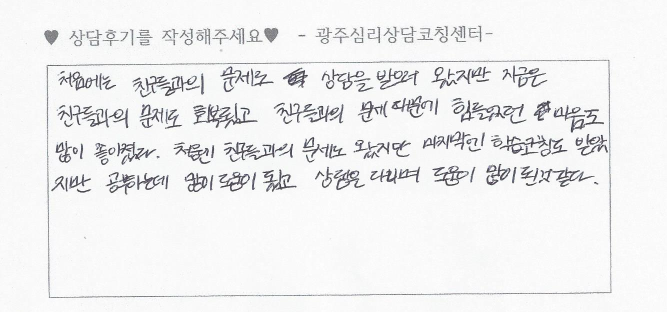 ♥ 상담후기를 작성해주세요♥ - 광주심리상담코칭센터-
처음에는 친구들과의 문제로 상담을 받으러 왔지만 지금은
친구들과의 문제도 회복됬고 친구들과의 문제 때문에 힘들었던 마음도
많이 좋아졌다. 처음엔 친구들과의 문제로 왔지만 마지막엔 학습코칭도 받았
지만 공부하는데 많이 도움이 됬고 상담을 다니며 도움이 많이 된것 같다.